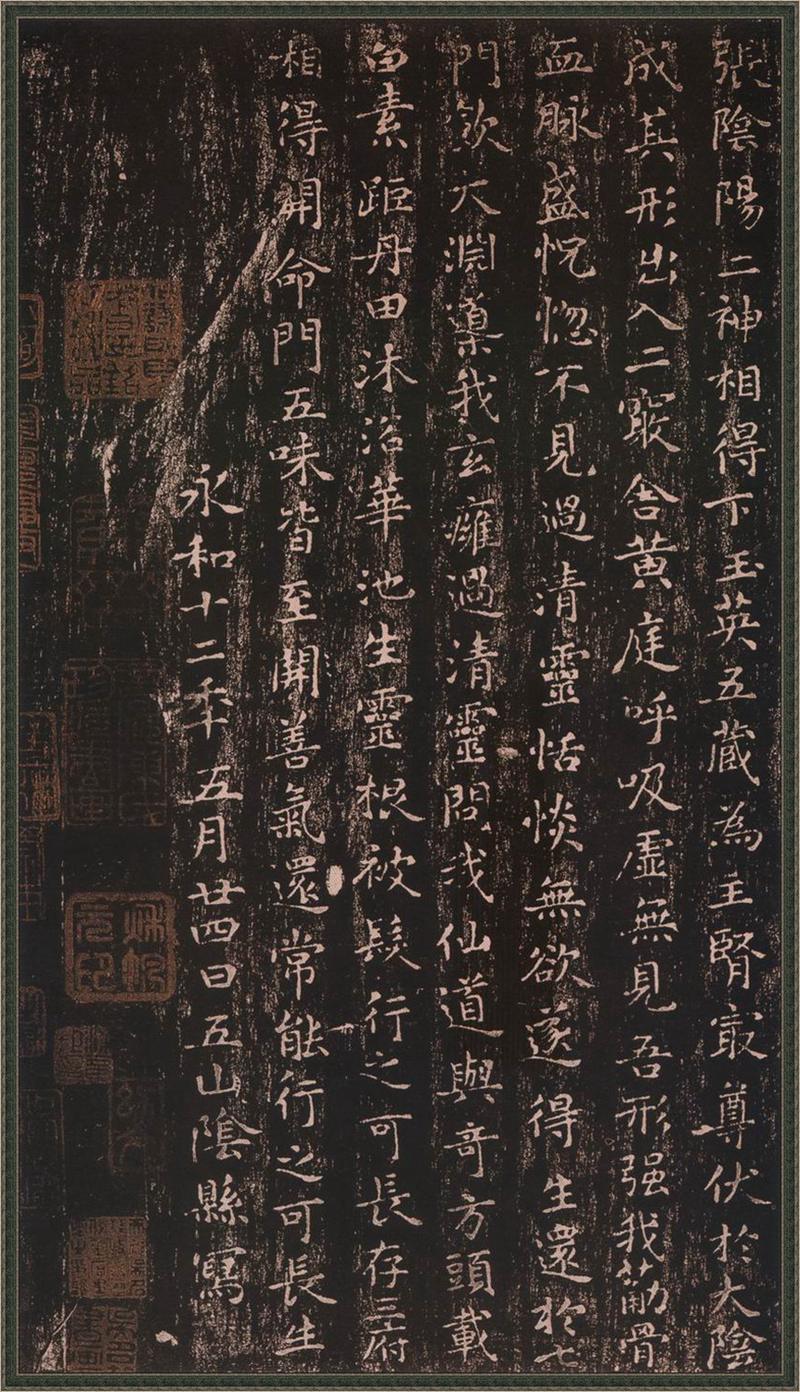 張陰陽二神相得下玉英五藏為主腎㝡尊伏於大陰
成其形出入二竅舍黄庭呼吸虛無見吾形强我筋骨
血脉盛怳惚不見過清靈恬惔無欲遂得生還於七
門飲大淵導我玄癰過清靈問我仙道與奇方頭載
白素距丹田沐浴華池生靈根被髮行之可長存三府
相得開命門五味皆至開善氣還常能行之可長生
永和十二年五月廿四日五山陰縣寫